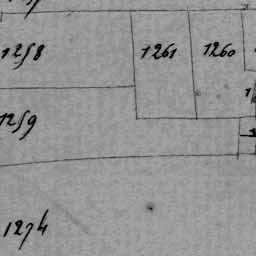 1258 1261 1260
1259
1274